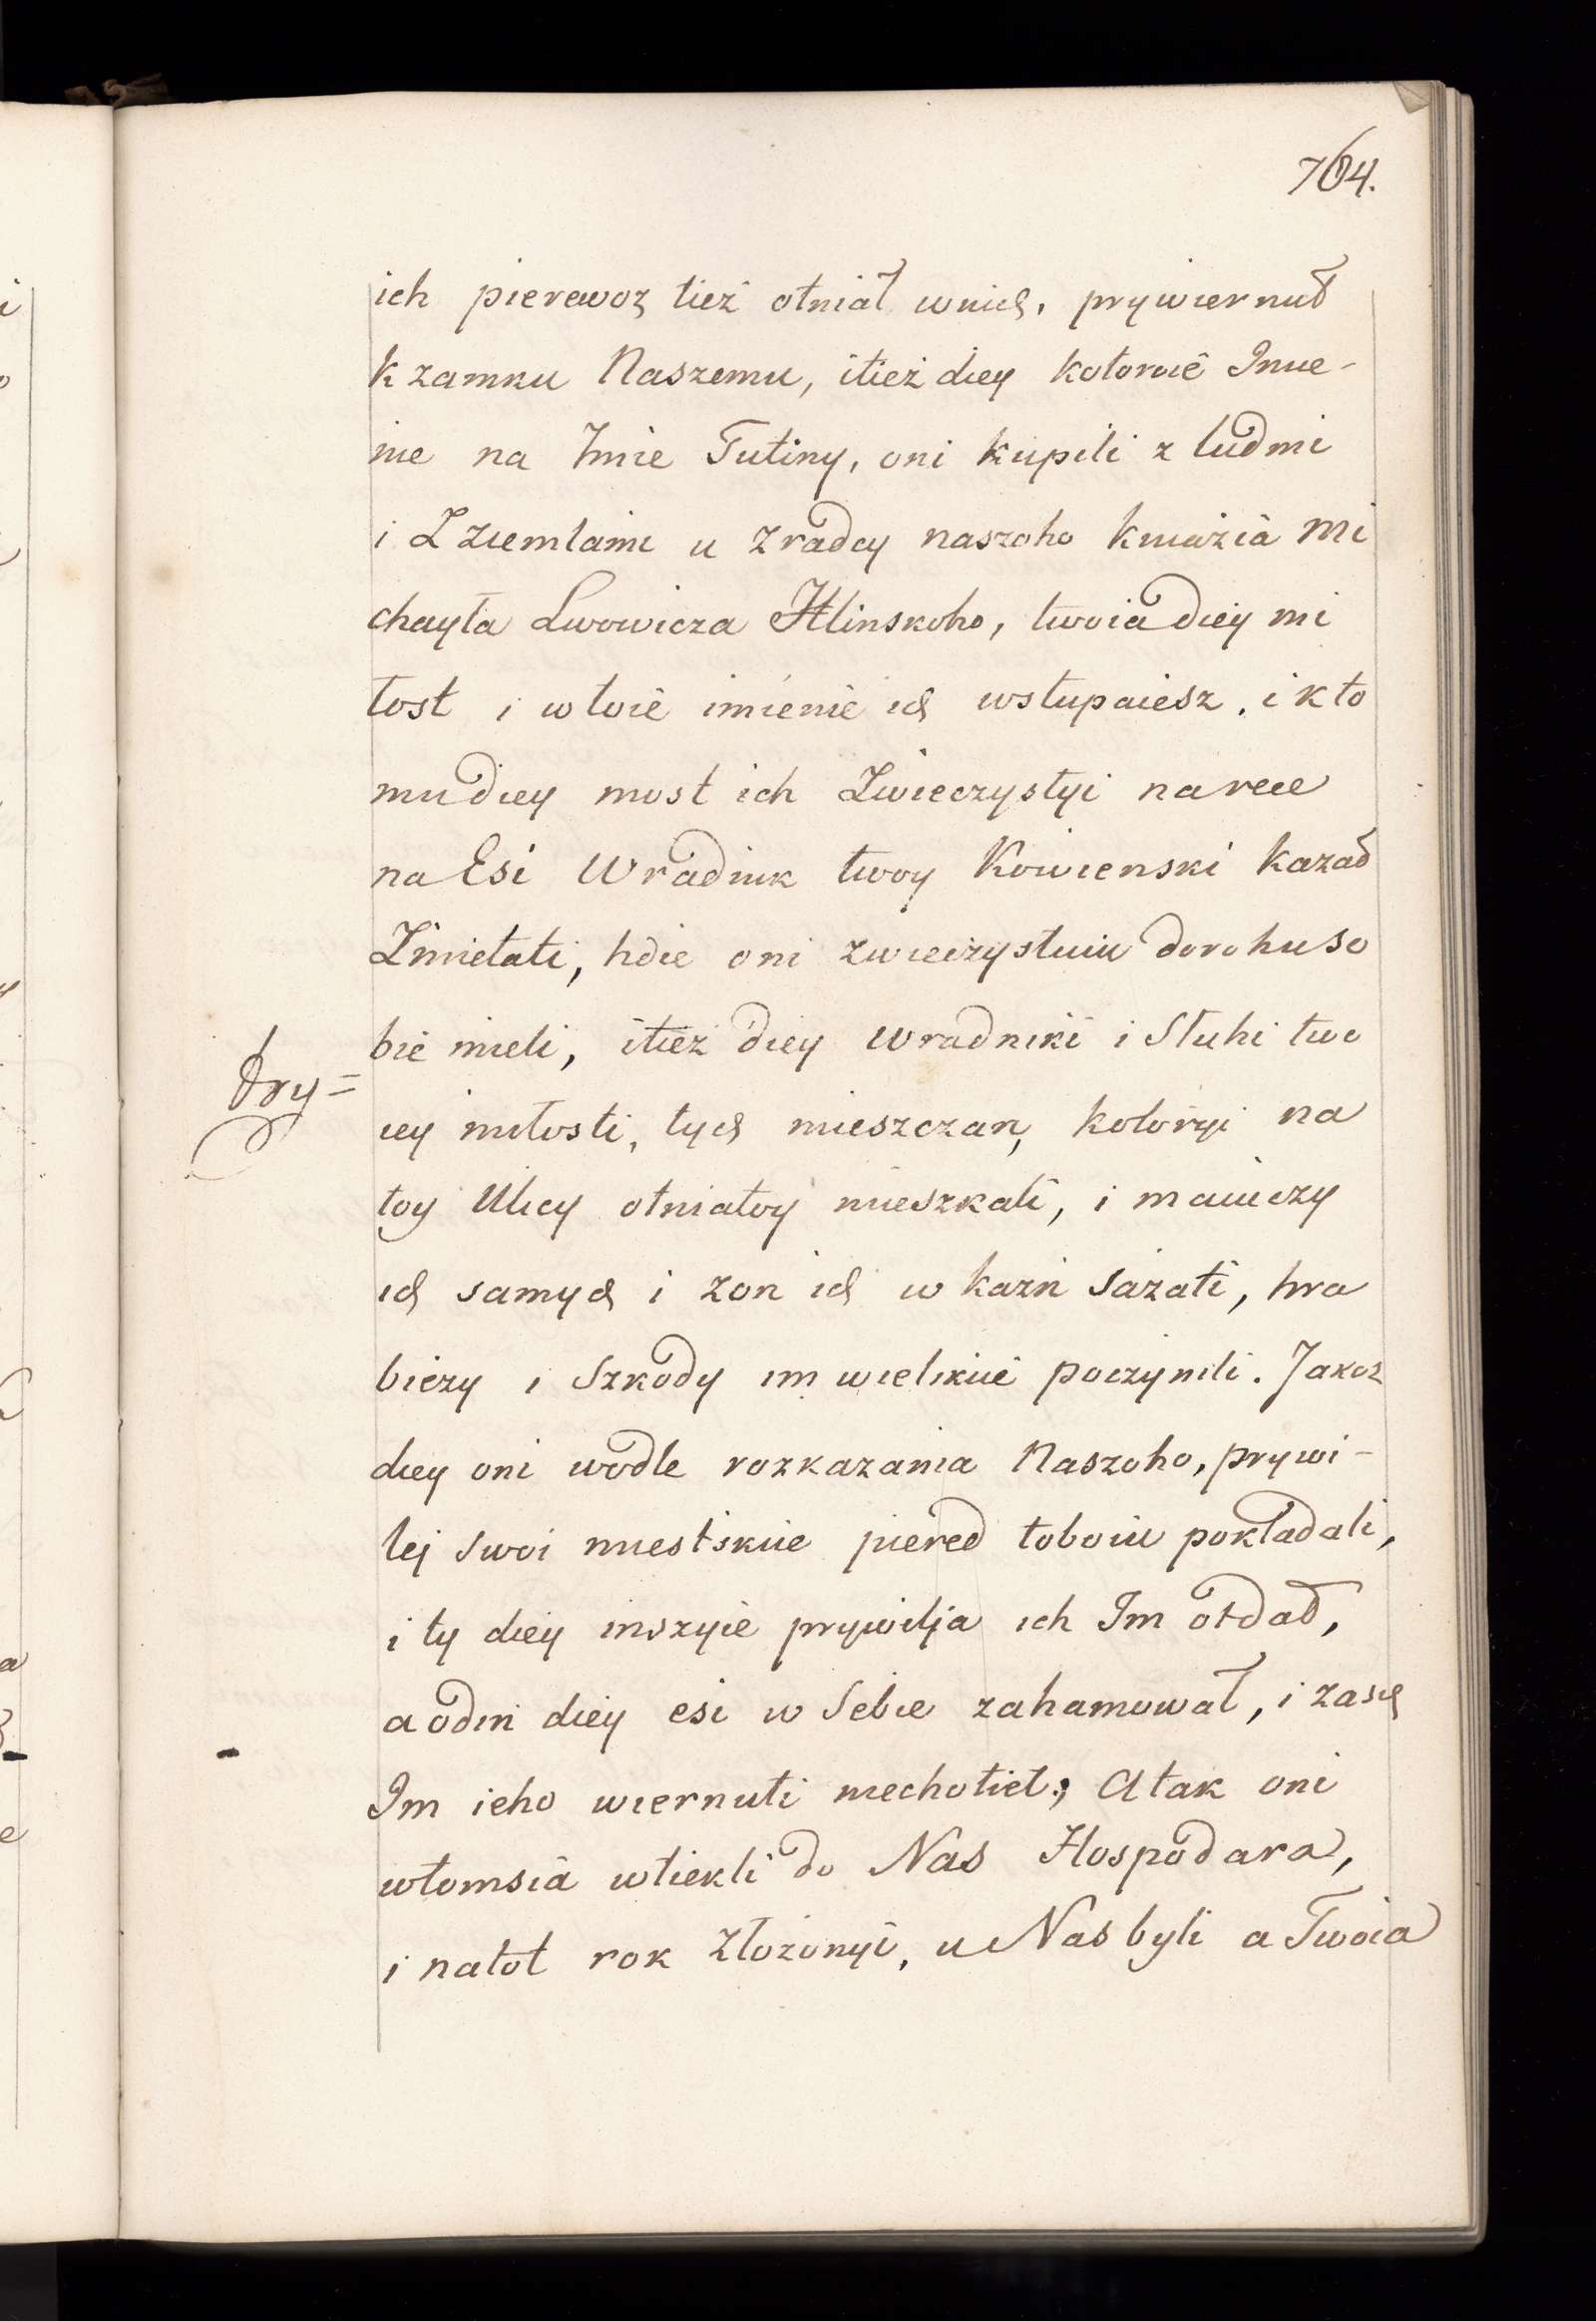 764.
ich pierewoz tież otniał w nich, prywiernuł
k zamku Naszemu, itież diey kotoroie Imie-
nie na Imie Tutiny, oni kupili z ludmi
i Zziemlami u Zradcy naszoho kniazia Mi
chayła Lwowicza Hlinskoho, twoia diey mi
łost i w toie imienie ich wstupaiesz. i kto
mu diey most ich Zwieczystyi na rece
na Esi Wradnik twoy Kowienski kazał
Zmietati, hdie oni zwieczystuiu dorohu so
bie mieli, itież diey Wradniki i Słuhi two
Dry=
iey miłosti, tych mieszczan, kotoryi na
toy Ulicy otniatoy mieszkali, i maiuczy
ich samych i zon ich w kazń sażali, hra
bieży i Szkody im wielikiie poczynili. Jakoz
diey oni wodle rozkazania Naszoho, prywi-
lej swoi miestskiie piered toboiu pokładali,
i ty diey inszyie prywilja ich Im otdał,
a odin diey esi w Sebie zahamował, i zasię
Im ieho wiernuti niechotieł; A tak oni
w tomsia wtiekli do Nas Hospodara,
i na tot rok Złożonyi, u Nas byli a Twoia